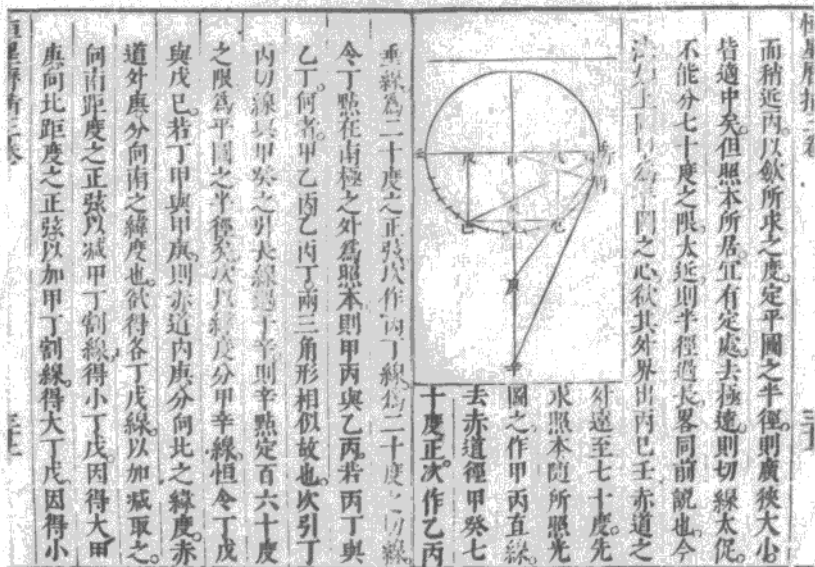 恒星曆指三卷
而稍近丙以斂所求之度定平圖之半徑則廣狹大小
皆適中矣但照本所居宜有定處去極遠則切線太促
不能分七十度之限太近則半徑過長畧同前説也今
法如上圖甲為平圖之心欲其外界出丙己壬赤道之
外遠至七十度先
求照本隨所照光
圖之作甲丙直線
去赤道徑甲癸七
十度正次作乙丙
垂線為二十度之正弦次作丙丁線為二十度之切線
令丁點在南極之外為照本則甲丙與乙丙若丙丁與
乙丁何者甲乙丙乙丙丁兩三角形相似故也次引丁
丙切線與甲癸之引長線遇于辛則辛點定百六十度
之限為平圖之半徑矣次以緯度分甲辛線恒令丁戊
與戊己若丁甲與甲庚則赤道内庚分向北之緯度赤
道外庚分向南之緯度也欲得各丁戊線以加減取之
向南距度之正弦以減甲丁割線得小丁戊因得大甲
庚向北距度之正弦以加甲丁割線得大丁戊因得小
恒星曆指三卷